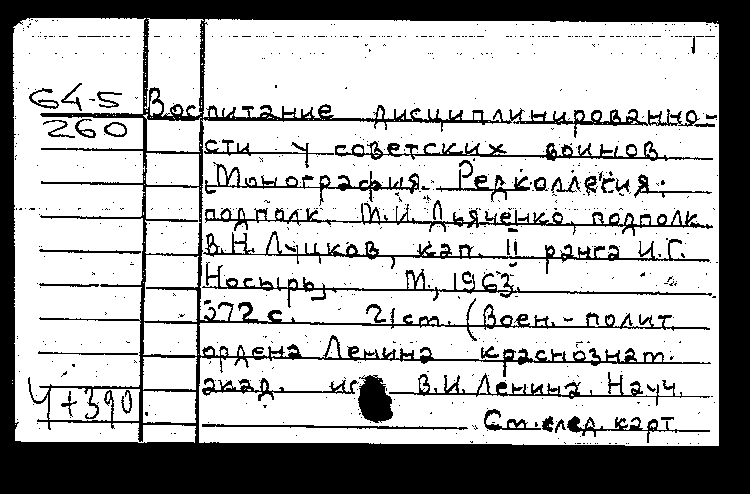 1
64-5
260
Воспитание дисциплинированно-
сти у советских воинов.
[Монография. Редколлегия:
подполк. М.И. Дьяченко, подполк
В.Н. Луцков, кап. II ранга И.Г.
Носырь]. М., 1963.
372 с. 21 ст. (Воен.-полит
ордена Ленина краснознам.
акад. В.И. Ленина. Науч.
Ч+390.
См. след. карт.